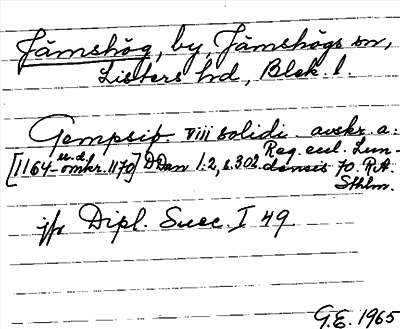 Jämshög, by, Jämshögs sn,
Listers hd, Blek. l.
Gempsiø. VIII solidi. avskr. a:
[1164-omkr. 1170] u.d. DDan 1:2, s. 302. Reg. eccl. Lun-
densis 70. RA.
Sthlm.
jfr Dipl. Suec. I 49
G.E. 1965